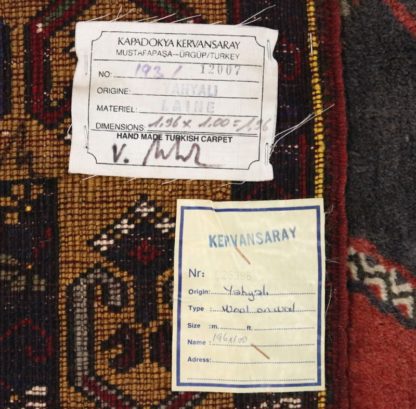 KAPADOKYA KERVANSARAY
MUSTAFAPAŞA-ÜRGÜP/TURKEY
NO: 193/ 12007
ORIGINE: YAHYALI
MATERIEL: LAINE
DIMENSIONS: 1.96 x 1.00 = 1.96
HAND MADE TURKISH CARPET
KERVANSARAY
Nr:
Origin: Yahyalı
Type: Wool on wool
Size: m. ft.
Name: 196x100
Adress: